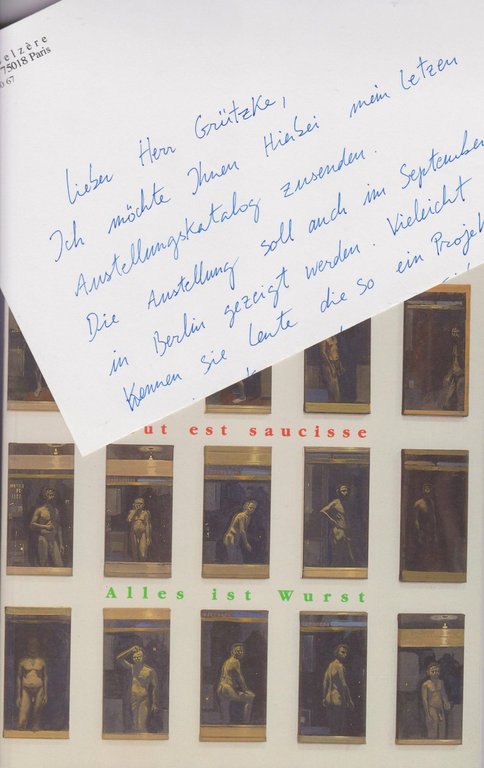 elzère
75018 Paris
67
Lieber Herr Grützke,
Ich möchte Ihnen Hierbei mein letzen
Austellungskatalog zusenden.
Die Austellung soll auch im September
in Berlin gezeigt werden. Vieleicht
kennen sie leute die so ein Projek
ut est saucisse
Alles ist Wurst